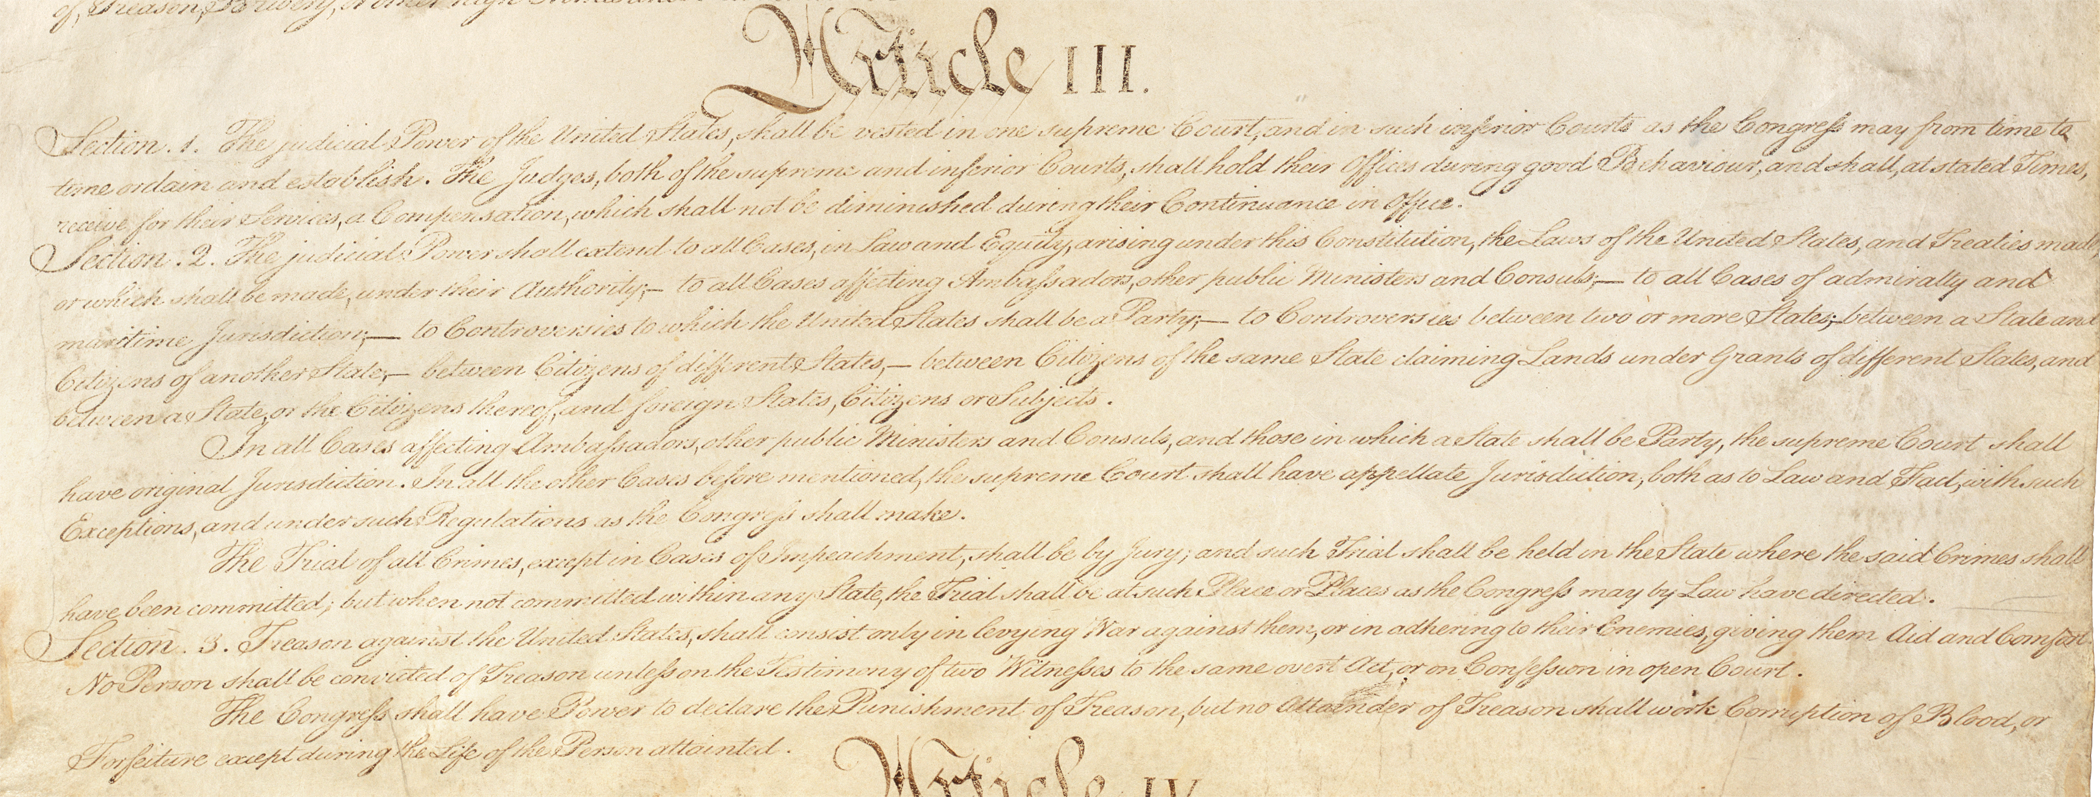 of, Treason, Bribery, or other high Crimes and Misdemeanors.
Article III.
Section. 1. The judicial Power of the United States, shall be vested in one supreme Court, and in such inferior Courts as the Congress may from time to
time ordain and establish. The Judges, both of the supreme and inferior Courts, shall hold their Offices during good Behaviour, and shall, at stated Times,
receive for their Services, a Compensation, which shall not be diminished during their Continuance in Office.
Section. 2. The judicial Power shall extend to all Cases, in Law and Equity, arising under this Constitution, the Laws of the United States, and Treaties made,
or which shall be made, under their Authority;— to all Cases affecting Ambassadors, other public Ministers and Consuls;— to all Cases of admiralty and
maritime Jurisdiction;— to Controversies to which the United States shall be a Party;— to Controversies between two or more States;—between a State and
Citizens of another State;— between Citizens of different States,— between Citizens of the same State claiming Lands under Grants of different States, and
between a State, or the Citizens thereof, and foreign States, Citizens or Subjects.
In all Cases affecting Ambassadors, other public Ministers and Consuls, and those in which a State shall be Party, the supreme Court shall
have original Jurisdiction. In all the other Cases before mentioned, the supreme Court shall have appellate Jurisdiction, both as to Law and Fact, with such
Exceptions, and under such Regulations as the Congress shall make.
The Trial of all Crimes, except in Cases of Impeachment, shall be by Jury; and such Trial shall be held in the State where the said Crimes shall
have been committed; but when not committed within any State, the Trial shall be at such Place or Places as the Congress may by Law have directed.
Section. 3. Treason against the United States, shall consist only in levying War against them, or in adhering to their Enemies, giving them Aid and Comfort
No Person shall be convicted of Treason unless on the Testimony of two Witnesses to the same overt Act, or on Confession in open Court.
The Congress shall have Power to declare the Punishment of Treason, but no Attainder of Treason shall work Corruption of Blood, or
Forfeiture except during the Life of the Person attainted.
Article IV